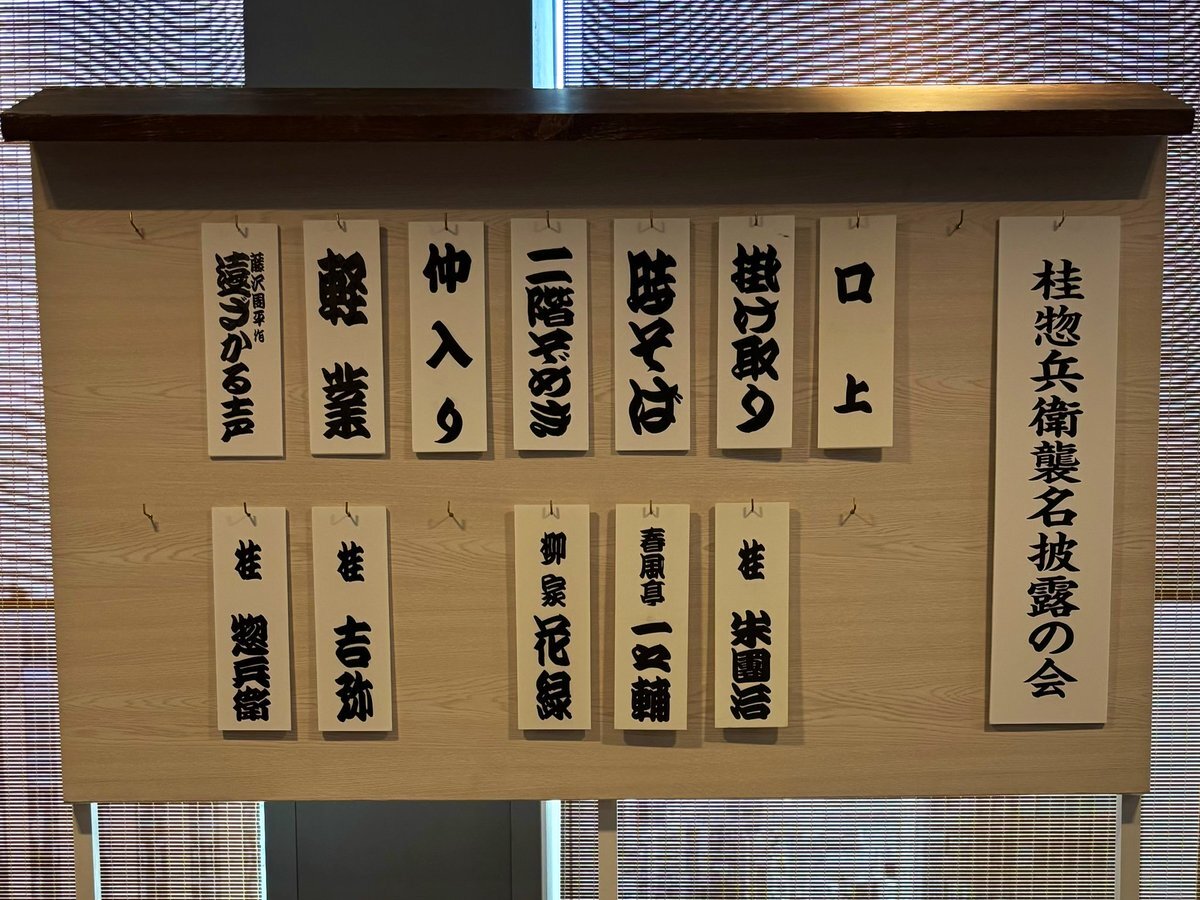 桂惣兵衛襲名披露の会
口上
掛け取り
桂 米團治
時そば
春風亭 一之輔
二階ぞめき
柳家 花緑
仲入り
軽業
桂 吉弥
藤沢周平作
遠ざかる声
桂 惣兵衛